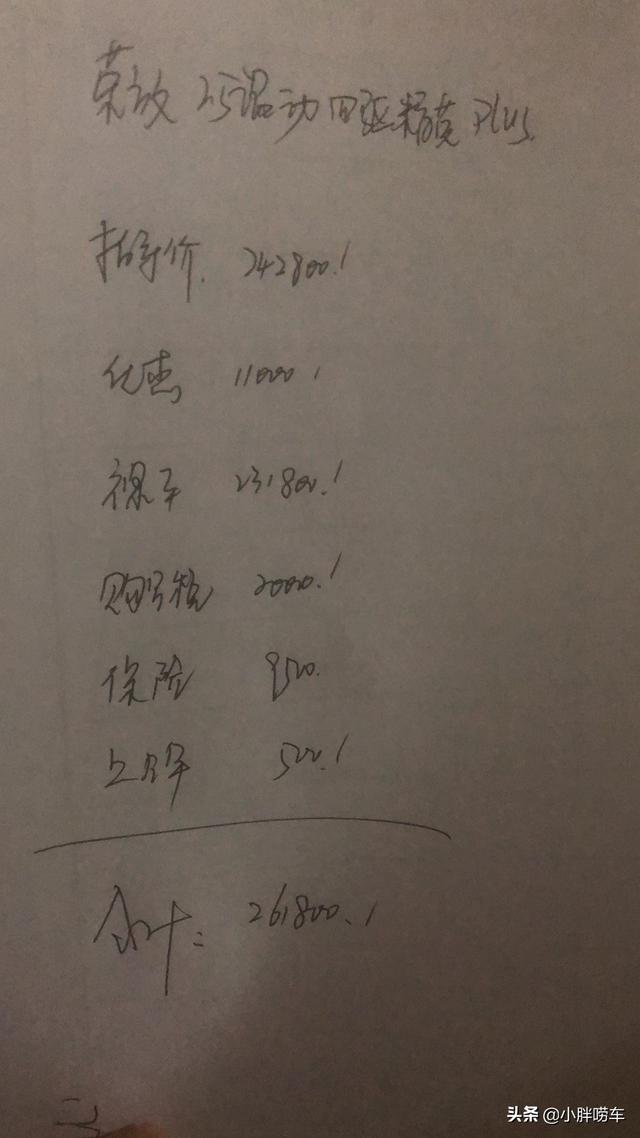 荣放 25混动四驱精英Plus
指导价. 242800./
优惠 11000 /
裸车 231800./
购置税 20000./
保险 9500.
上牌 500./
合计: 261800./
头条 @小胖唠车